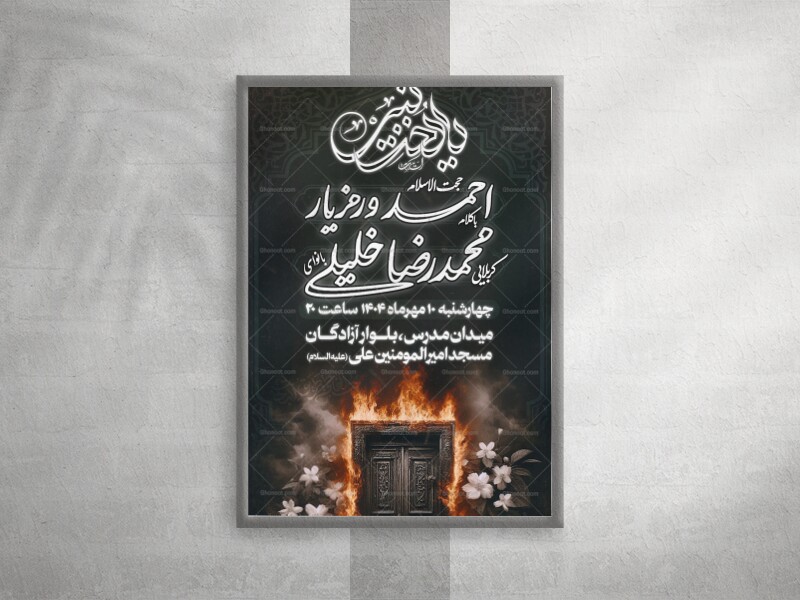 یا بنت نبی
حجت الاسلام
احمد ورمزیار
با کلام
محمدرضا خلیلی
کربلایی
با نوای
چهارشنبه ۱۰ مهرماه ۱۴۰۴ ساعت ۲۰
میدان مدرس، بلوار آزادگان
مسجد امیرالمومنین علی (علیه السلام)